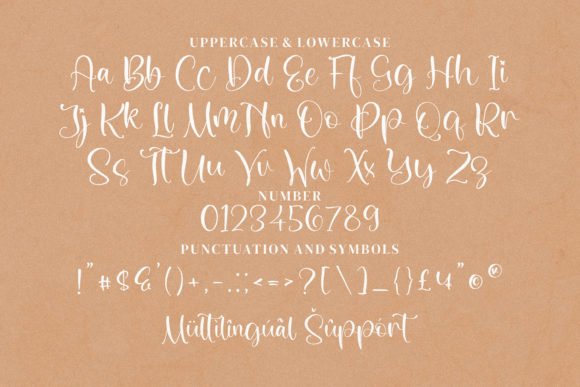 UPPERCASE & LOWERCASE
Aa Bb Cc Dd Ee Ff Gg Hh Ii
Jj Kk Ll Mm Nn Oo Pp Qq Rr
Ss Tt Uu Vv Ww Xx Yy Zz
NUMBER
0123456789
PUNCTUATION AND SYMBOLS
!"#$&'()+,-.:;<=>?[\]_{}£"©®
Mültilingúâl Šûppórt